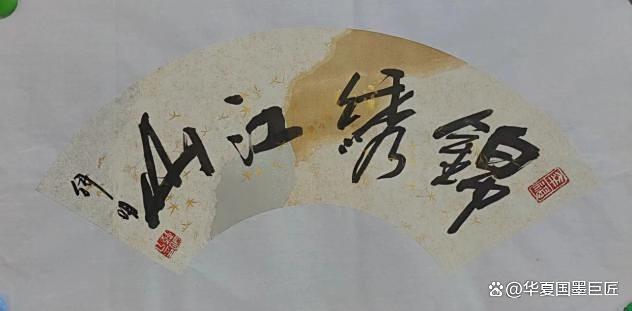 錦綉江山
华夏国墨巨匠